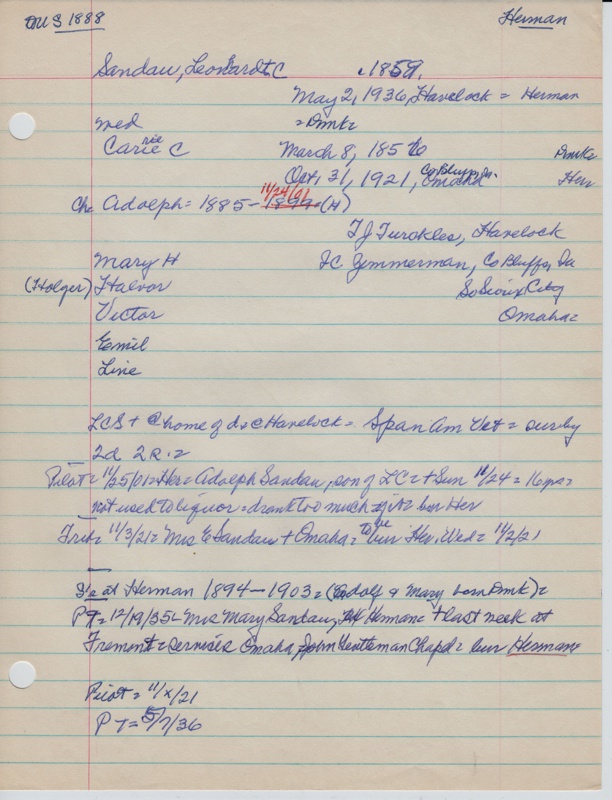 DUS 1888 Herman
Sandau, Leonhardt C c1859.
May 2, 1936, Havelock = Herman
wed = Dmk=
Carrie C March 8, 1856 Dmk=
Oct. 31, 1921, Co Bluffs, Ia. Omaha Her
Ch= Adolph = 1885 - 1899 11/24/01 (H)
TJ Turckles, Havelock
Mary H JC Zimmerman, Co Bluffs, Ia
(Holger) Halvor So Sioux City
Victor Omaha=
Emil
Line
LCS + @ home of d = @ Havelock = Span Am Vet = sur by
2d 2s =
Pilot = 11/25/01 = Her = Adolph Sandau, son of LC = + Sun 11/24 = 16 yrs =
not used to liquor = drank too much = bur Her
Trib = 11/3/21 = Mrs E Sandau + Omaha = to be bur Her. Wed = 11/2/21
Fe at Herman 1894 - 1903 = (Codolf & Mary born Dmk) =
PT = 12/19/35 - Mrs Mary Sandau, Herman = + last week at
Fremont = services Omaha, John Gentleman Chapel = bur Herman=
Pilot = 11/x/21
PT = 5/7/36